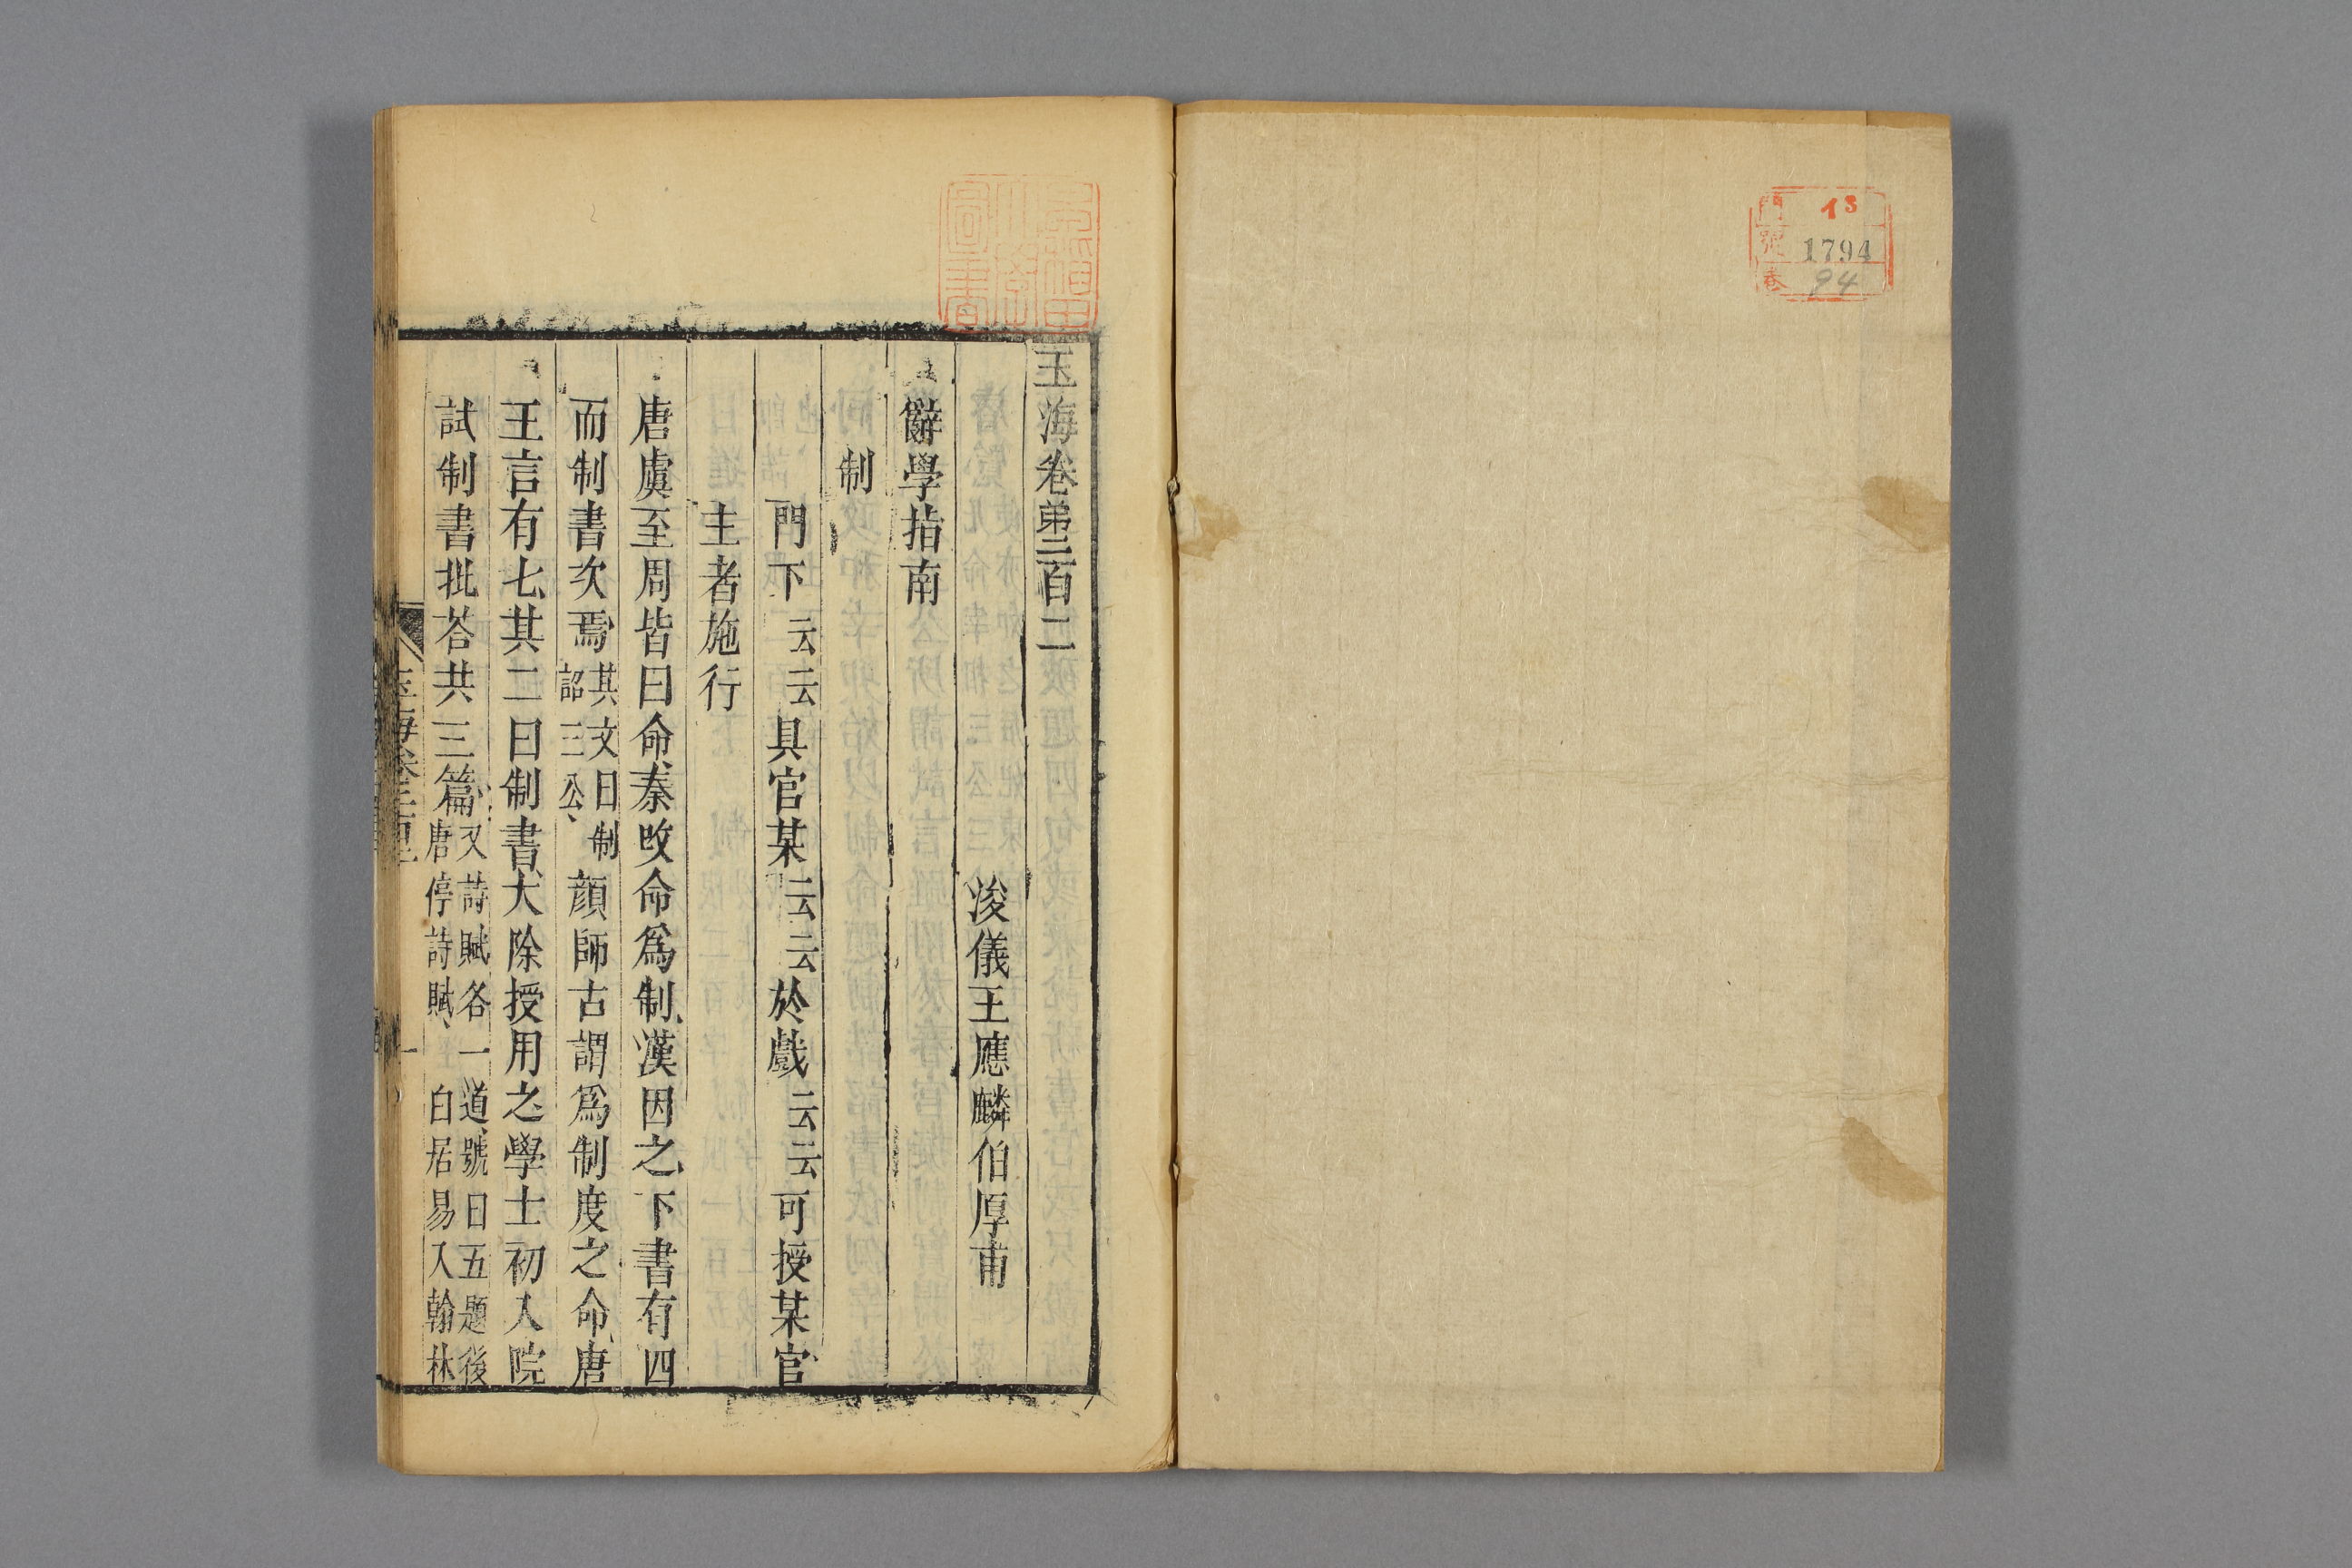 門 イ3
號 1794
卷 94
玉海卷弟二百二
浚儀王應麟伯厚甫
辭學指南
制
門下云云具官某云云於戲云云可授某官
主者施行
唐虞至周皆曰命秦改命爲制漢因之下書有四
而制書次焉其文曰制詔三公顏師古謂爲制度之命唐
王言有七其二曰制書大除授用之學士初入院
試制書批荅共三篇又詩賦各一道號曰五題後唐停詩賦白居易入翰林